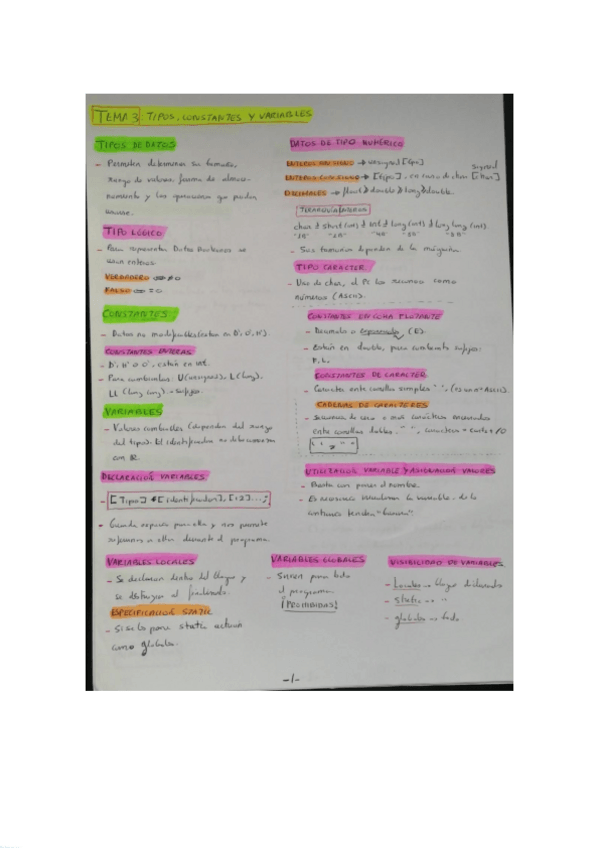 TEMA 3: TIPOS, CONSTANTES Y VARIABLES
TIPOS DE DATOS
- Permiten determinar su tamaño,
rango de valores, forma de almace-
namiento y las operaciones que pueden
usarse.
TIPO LÓGICO
- Para representar Datos Booleanos se
usan enteros.
VERDADERO ⇔ ≠ 0
FALSO ⇔ = 0
CONSTANTES
- Datos no modificables
CONSTANTES ENTERAS
- D', H' o O', están en int.
- Para cambiarlas: U(unsigned), L(long),
LL (long long). = sufijos.
VARIABLES
- Valores cambiables (dependen del rango
del tipo). El identificador no debe comenzar
con
DECLARACIÓN VARIABLES
- [Tipo] [identificador], [i2]...;
- Guarda espacio para ella y nos permite
referirnos a ella durante el programa.
VARIABLES LOCALES
- Se declaran dentro del bloque y
se destruyen al finalizarlo.
ESPECIFICACIÓN STATIC
- Si se le pone static actúan
como globales.
DATOS DE TIPO NUMÉRICO
ENTEROS SIN SIGNO → unsigned [tipo]
ENTEROS CON SIGNO → [tipo], en caso de char signed [char]
DECIMALES → float double long double.
JERARQUÍA
char short (int) int long (int) long long (int)
- Sus tamaños dependen de la máquina
TIPO CARACTER
- Uso de char, el PC los reconoce como
números (ASCII).
CONSTANTES EN COMA FLOTANTE
- Decimales o exponenciales (E).
- Están en double, para cambiarlo sufijos:
F, L.
CONSTANTES DE CARACTER
- Caracter entre comillas simples ' ',
CADENAS DE CARACTERES
- Secuencia de cero o más caracteres encerrados
entre comillas dobles. " ",
UTILIZACIÓN VARIABLE Y ASIGNACIÓN VALORES
- Basta con poner el nombre.
- Es necesario inicializar la variable, de lo
contrario tendrá "basura".
VARIABLES GLOBALES
- Sirven para todo
el programa.
¡PROHIBIDAS!
VISIBILIDAD DE VARIABLES
- Locales → bloque declarado
- static → " "
- globales → todo
-1-